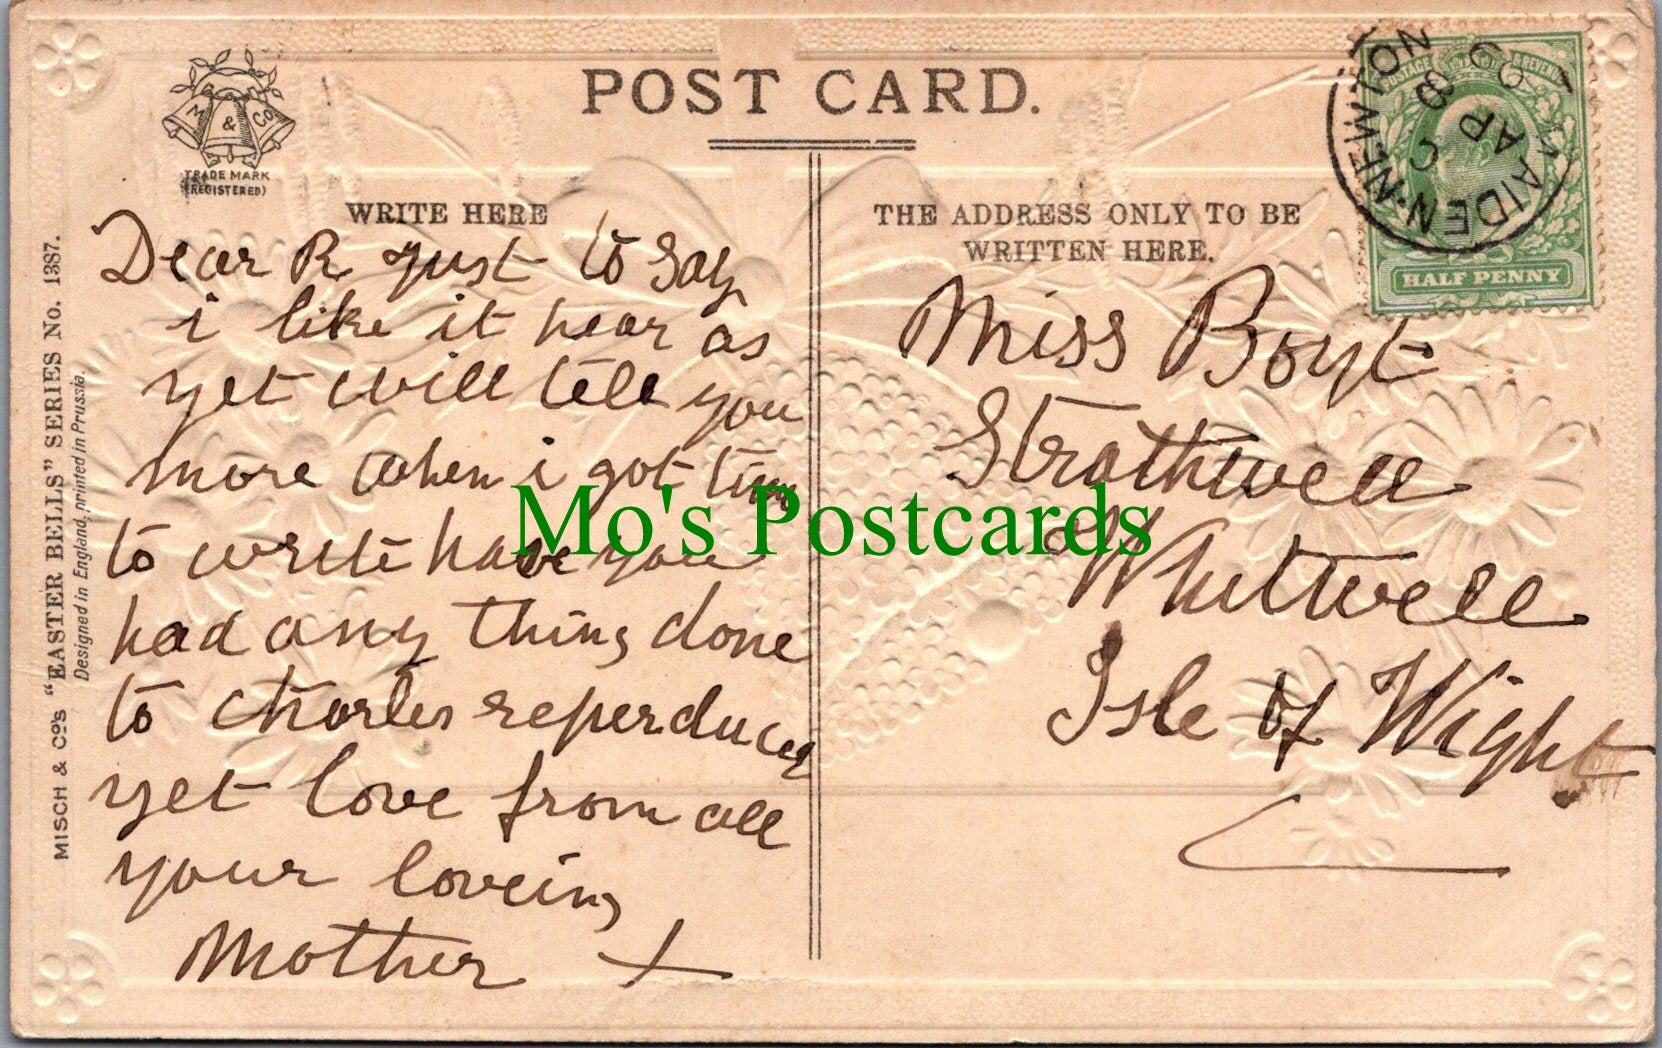 POST CARD.
M & Co
TRADE MARK
(REGISTERED)
WRITE HERE
THE ADDRESS ONLY TO BE
WRITTEN HERE.
MISCH & Co's "EASTER BELLS" SERIES No. 1387.
Designed in England, printed in Prussia.
Dear R just to say
i like it hear as
yet will tell you
more when i got time
to write have you
had any thing done
to Charles reperducey
yet love from all
your loveing
Mother X
Miss Boyt
Strathwell
Whitwell
Isle of Wight
MAIDEN-NEWTON
C
AP 8
09
POSTAGE & REVENUE
HALF PENNY
Mo's Postcards